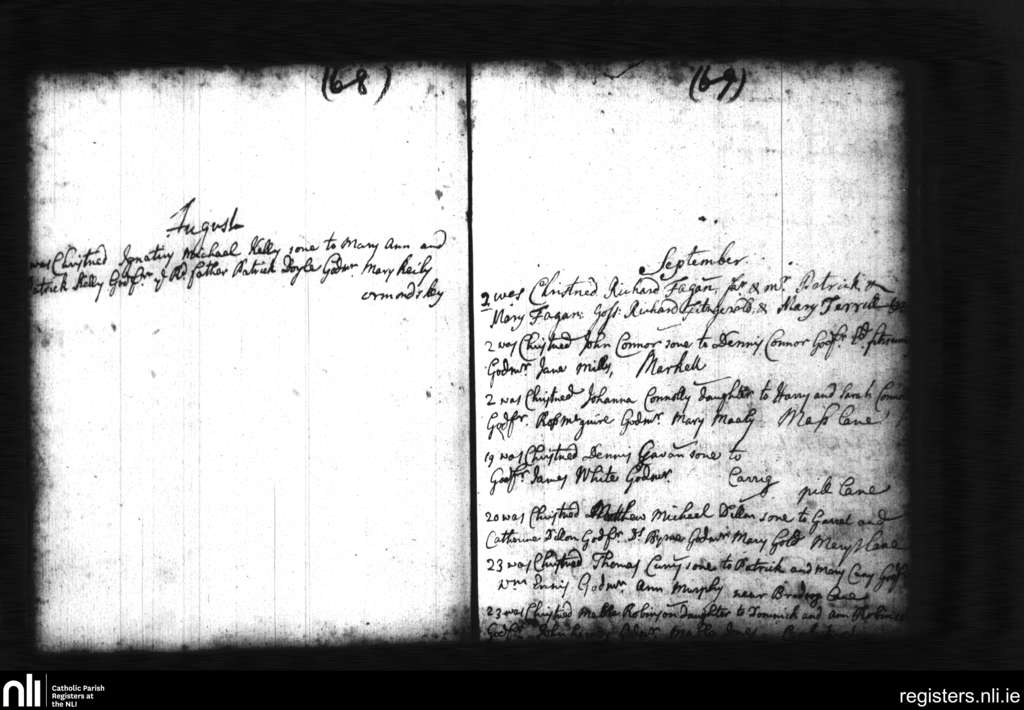 (68)
August
was Christned Ignatius Michael Kelly sone to Mary Ann and
Patrick Kelly Godfr. ye Rd father Patrick Doyle Godmr Mary Reily
ormonds key
(69)
September
2 was Christned Richard Fagan, son & Mr. Patrick &
Mary Fagan: Goss: Richard Fitzgerald, & Mary Terrell
2 was Christned John Connor sone to Dennis Connor Godfr
Godmr Jane Mills, Markell
2 was Christned Johanna Connolly daughter to Harry and Sarah
Godfr. Ross McGuire Godmr. Mary Maaly. Mass lane
19 was Christned Dennis Gavan sone to
Godfr James White Godmr. Carrig
pill lane
20 was Christned Matthew Michael Dillon sone to Garrel and
Catherine Dillon Godfr. Byrne Godmr Mary Gold Marys lane
23 was Christned Thomas Curry sone to Patrick and Mary Curry Godfr
Wm Ennis Godmr. Ann Murphy near Bradogs lane
23 was Christned Mable Robinson Daughter to Dominick and Ann Robinson
Godfr John Godmr.
nli
Catholic Parish
Registers at
the NLI
registers.nli.ie